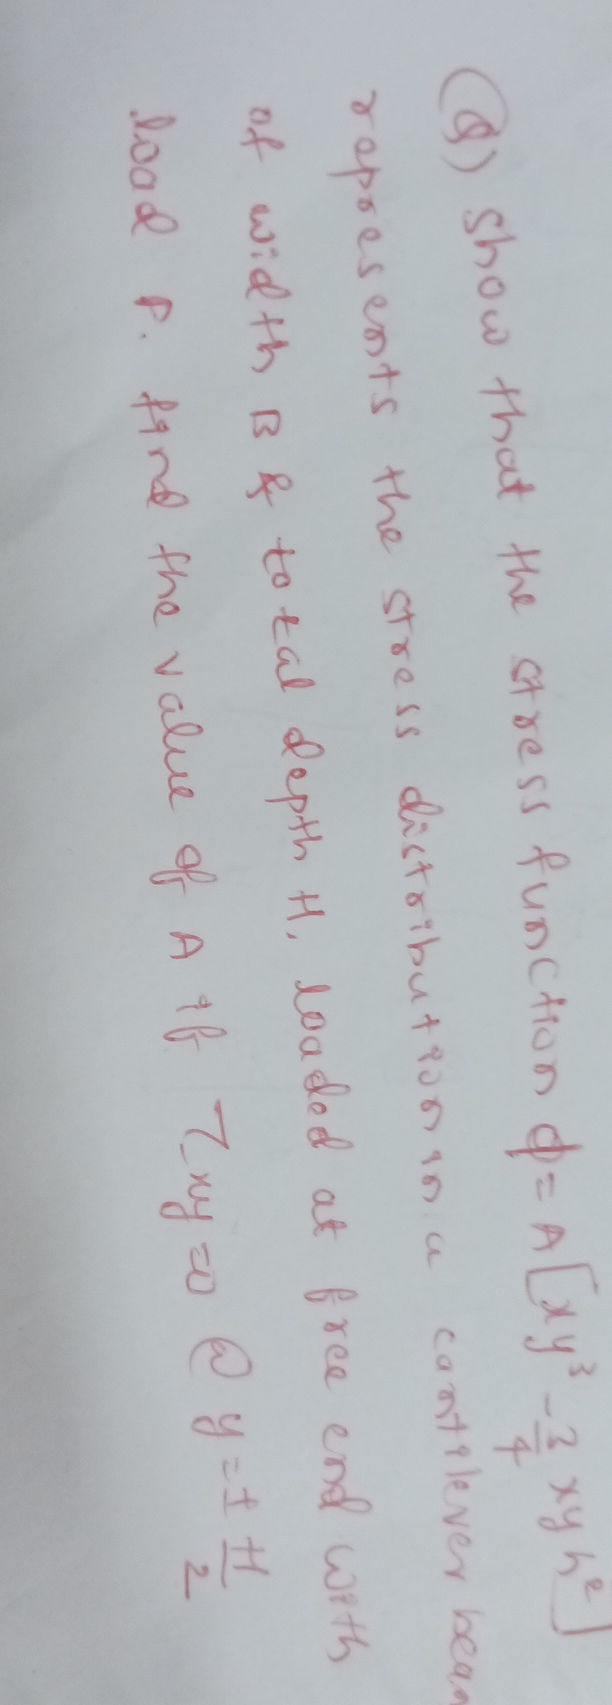 Q) Show that the stress function ϕ = A[xy³ - 3/4 xyh²]
represents the stress distribution in a cantilever beam
of width B & total depth H, loaded at free end with
load P. find the value of A if τxy = 0 @ y = ± H/2